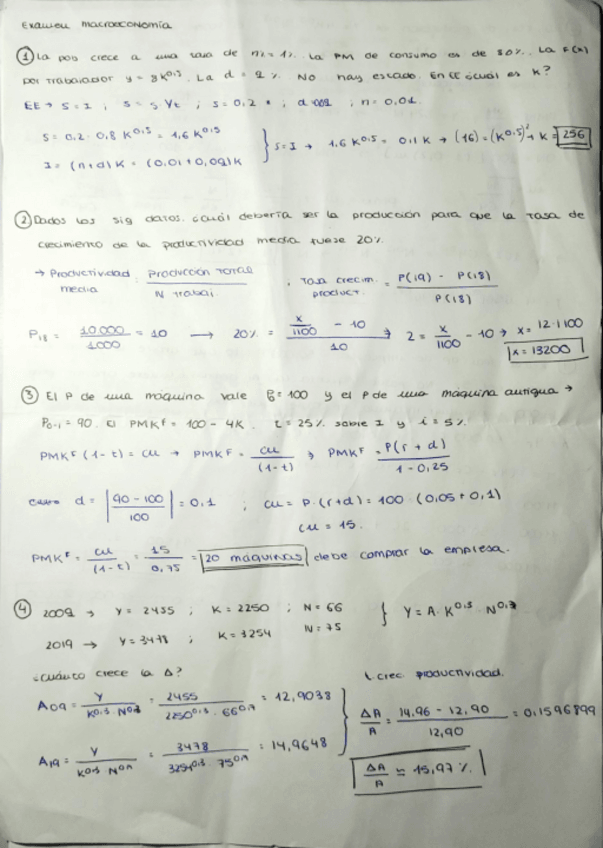 Examen macroeconomía
① La pob crece a una tasa de n = 1%. La PM de consumo es de 80%. La F(K)
por trabajador y = 8K^0,5. La d = 9%. No hay estado. En EE ¿cuál es K?
EE → S = I ; S = s·Yt ; s = 0,2 ; d = 0,09 ; n = 0,01.
S = 0,2 · 0,8 K^0,5 = 1,6 K^0,5
I = (n+d)K = (0,01 + 0,09)K
} S = I → 1,6 K^0,5 = 0,1 K → (16)² = (K^0,5)² → K = 256
② Dados los sig datos. ¿Cuál debería ser la producción para que la tasa de
crecimiento de la productividad media fuese 20%.
→ Productividad media = Producción total / N trabaj. , Tasa crecim. product. = P(19) - P(18) / P(18)
P18 = 10.000 / 1000 = 10 → 20% = x/1100 - 10 / 10 → 2 = x/1100 - 10 → x = 12·1100
x = 13200
③ El P de una máquina vale P = 100 y el P de una máquina antigua →
P0-1 = 90. El PMK^F = 100 - 4K. t = 25% sobre I y i = 5%.
PMK^F (1 - t) = cu → PMK^F = cu / (1-t) → PMK^F = P(r + d) / 1 - 0,25
d = |90 - 100 / 100| = 0,1 ; cu = P·(r+d) = 100 · (0,05 + 0,1)
cu = 15.
PMK^F = cu / (1-t) = 15 / 0,75 = 20 máquinas debe comprar la empresa.
④ 2009 → Y = 2455 ; K = 2250 ; N = 66
2019 → Y = 3478 ; K = 3254 N = 75
} Y = A · K^0,3 · N^0,7
¿Cuánto crece la A?
crec productividad.
A09 = Y / K^0,3 · N^0,7 = 2455 / 2250^0,3 · 66^0,7 = 12,9038
A19 = Y / K^0,3 · N^0,7 = 3478 / 3254^0,3 · 75^0,7 = 14,9648
ΔA / A = 14,96 - 12,90 / 12,90 = 0,1596899
ΔA / A ≃ 15,97%.